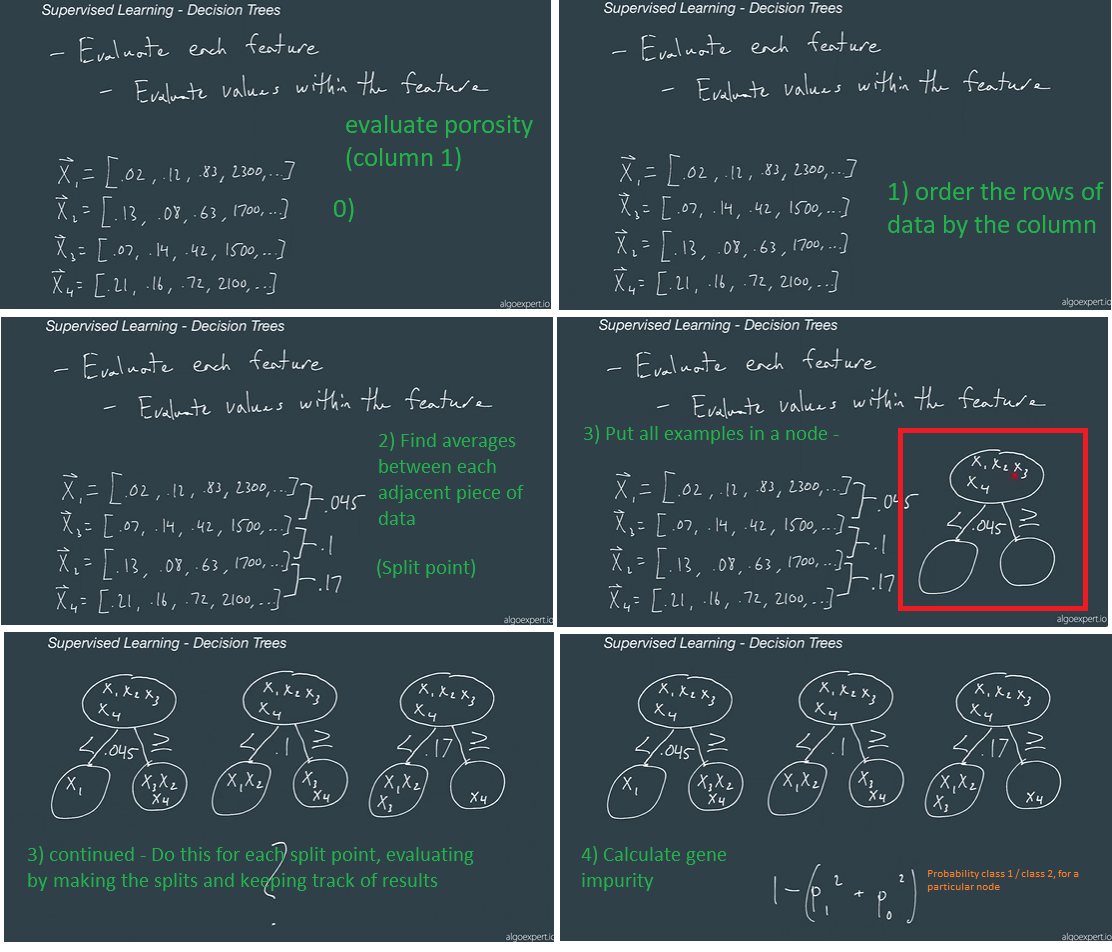 Supervised Learning - Decision Trees
- Evaluate each feature
- Evaluate values within the feature
evaluate porosity
(column 1)
X₁ = [.02, .12, .83, 2300, ...]
X₂ = [.13, .08, .63, 1700, ...]
0)
X₃ = [.07, .14, .42, 1500, ...]
X₄ = [.21, .16, .72, 2100, ...]
algoexpert.io
Supervised Learning - Decision Trees
- Evaluate each feature
- Evaluate values within the feature
X₁ = [.02, .12, .83, 2300, ...]
X₃ = [.07, .14, .42, 1500, ...]
X₂ = [.13, .08, .63, 1700, ...]
X₄ = [.21, .16, .72, 2100, ...]
1) order the rows of
data by the column
algoexpert.io
Supervised Learning - Decision Trees
- Evaluate each feature
- Evaluate values within the feature
2) Find averages
between each
adjacent piece of
data
(Split point)
X₁ = [.02, .12, .83, 2300, ...]
.045
X₃ = [.07, .14, .42, 1500, ...]
.1
X₂ = [.13, .08, .63, 1700, ...]
.17
X₄ = [.21, .16, .72, 2100, ...]
algoexpert.io
Supervised Learning - Decision Trees
- Evaluate each feature
- Evaluate values within the feature
3) Put all examples in a node -
X₁ = [.02, .12, .83, 2300, ...]
.045
X₃ = [.07, .14, .42, 1500, ...]
.1
X₂ = [.13, .08, .63, 1700, ...]
.17
X₄ = [.21, .16, .72, 2100, ...]
X₁ X₂ X₃
X₄
< .045 ≥
algoexpert.io
Supervised Learning - Decision Trees
X₁ X₂ X₃
X₄
< .045 ≥
X₁
X₃ X₂
X₄
X₁ X₂ X₃
X₄
< .1 ≥
X₁ X₂
X₃
X₄
X₁ X₂ X₃
X₄
< .17 ≥
X₁ X₂
X₃
X₄
3) continued - Do this for each split point, evaluating
by making the splits and keeping track of results
?
algoexpert.io
Supervised Learning - Decision Trees
X₁ X₂ X₃
X₄
< .045 ≥
X₁
X₃ X₂
X₄
X₁ X₂ X₃
X₄
< .1 ≥
X₁ X₂
X₃
X₄
X₁ X₂ X₃
X₄
< .17 ≥
X₁ X₂
X₃
X₄
4) Calculate gene
impurity
1 - (p₁² + p₀²)
Probability class 1 / class 2, for a
particular node
algoexpert.io